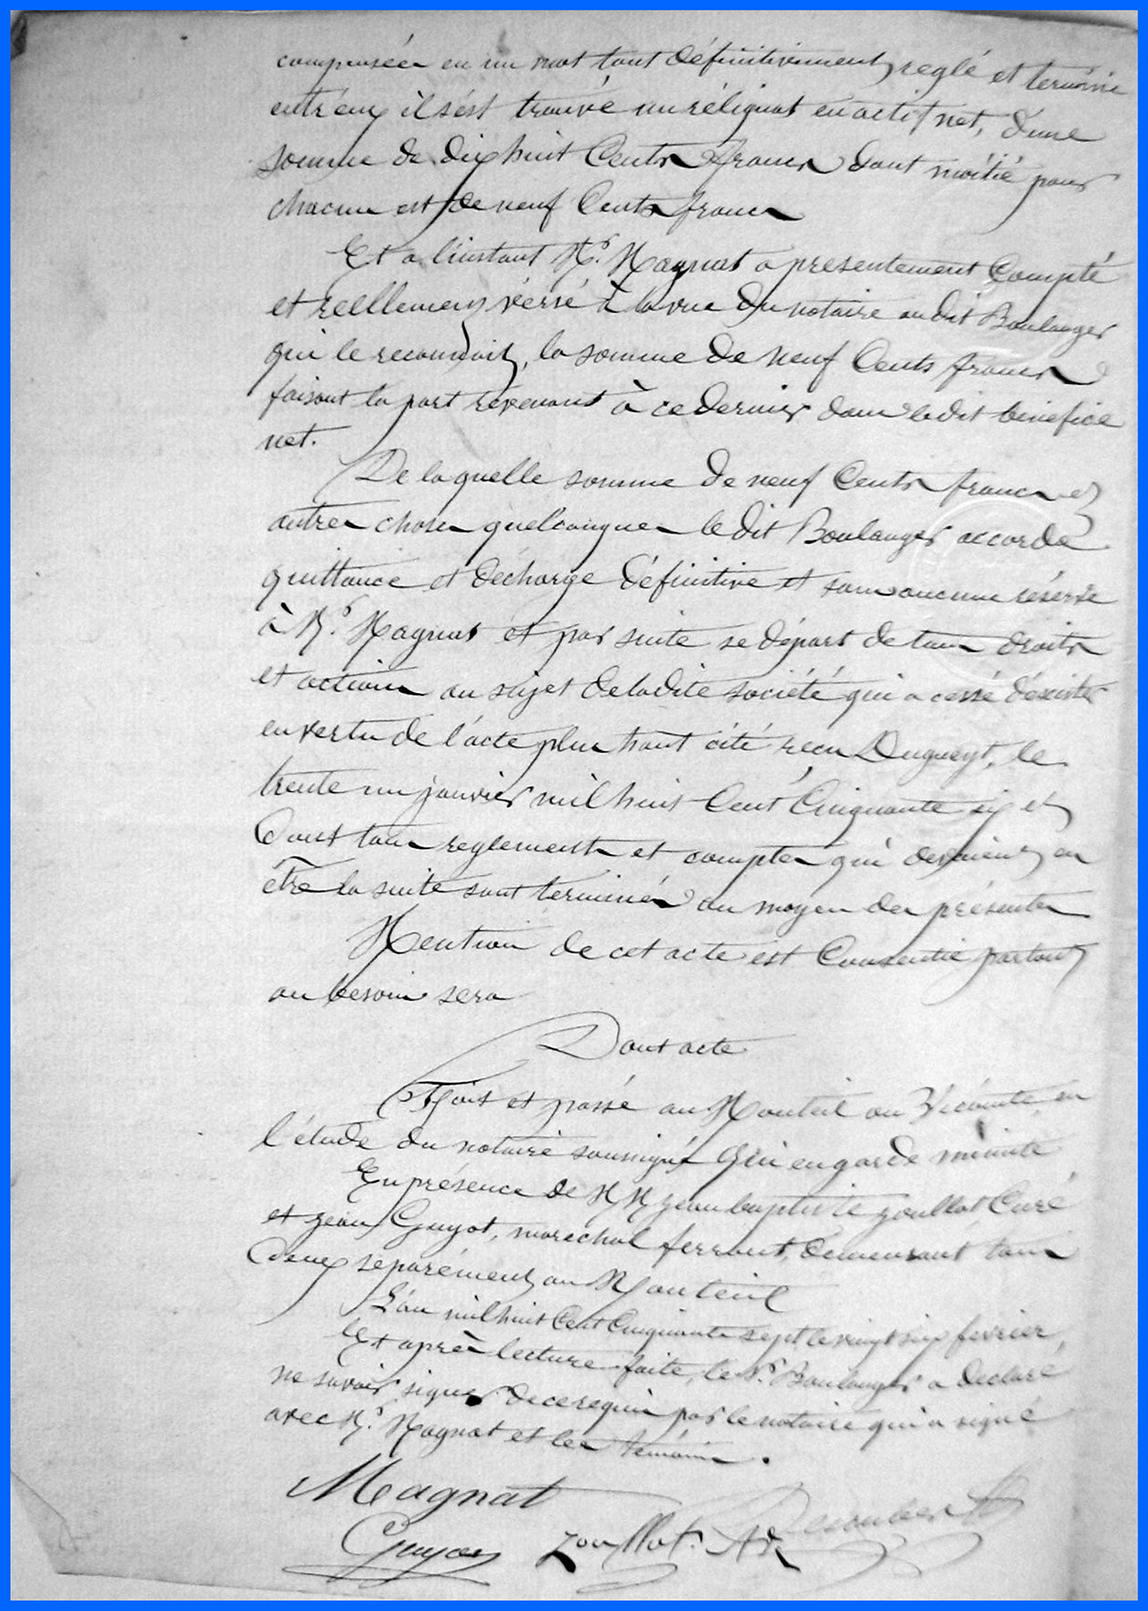 compensée en un mot tout définitivement reglé et terminé
entr'eux il s'est trouvé un réliquat en actif net, d'une
somme de dix huit Cents francs dont moitié pour
chacun est de neuf Cents francs
Et a l'instant Mr. Magnat a présentement Compté
et reellement versé à la vue du notaire au dit Boulanger
qui le reconnait, la somme de neuf Cents francs
faisant la part revenant à ce dernier dans le dit bénéfice
net.
De laquelle somme de neuf Cents francs et
autres choses quelconques le dit Boulanger accorde
quittance et décharge définitive et sans aucune réserve
à Mr. Magnat et par suite se départ de tous droits
et actions au sujet de ladite société qui a cessé d'éxister
en vertu de l'acte plus haut cité reçu Dugueyt, le
trente un janvier mil huit Cent Cinquante six et
Dont tous reglements et comptes qui devaient en
être la suite sont terminés au moyen des présentes
Mention de cet acte est Consentie partout
ou besoin sera
Dont acte
Fait et passé au Monteil au Vicomte en
l'étude du notaire soussigné qui en garde minute
En présence de MM jean baptiste zoullot Curé
et jean Guyot, maréchal ferrant, demeurant tous
deux séparément au Monteil
L'an mil huit Cent Cinquante sept le vingt six fevrier
Et après lecture faite, le Sr. Boulanger a déclaré
ne savoir signer de ce requis par le notaire qui a signé
avec Mr. Magnat et les témoins.
Magnat
Guyot zoullot.